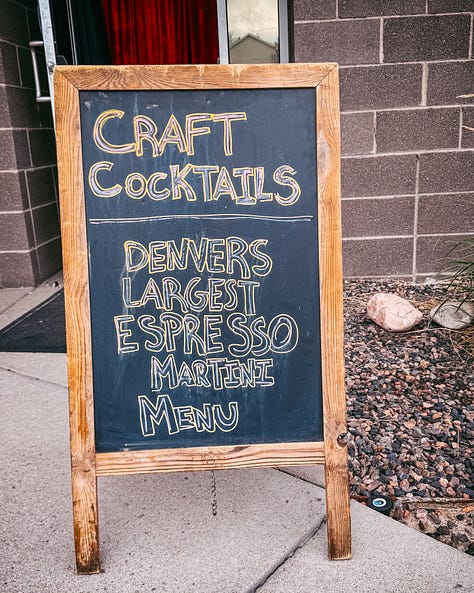 CRAFT
COCKTAILS
DENVERS
LARGEST
ESPRESSO
MARTINI
MENU